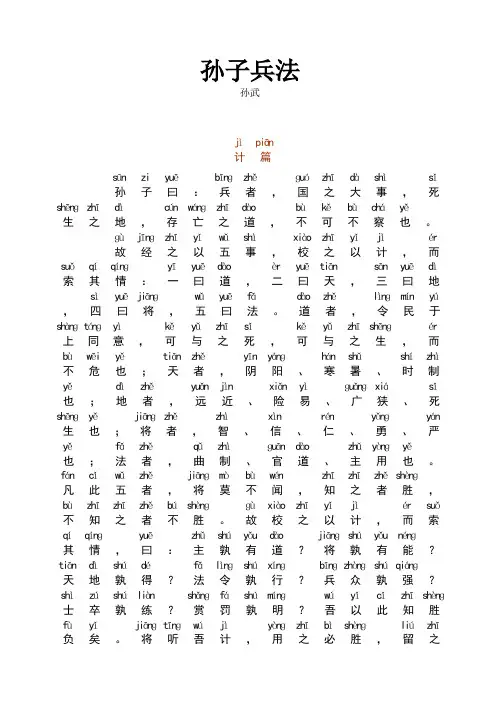 孙子兵法
孙武
jì piān
计 篇
sūn zi yuē bīng zhě guó zhī dà shì sǐ
孙子曰：兵者，国之大事，死
shēng zhī dì cún wáng zhī dào bù kě bù chá yě
生之地，存亡之道，不可不察也。
gù jīng zhī yǐ wǔ shì xiào zhī yǐ jì ér
故经之以五事，校之以计，而
suǒ qí qíng yī yuē dào èr yuē tiān sān yuē dì
索其情：一曰道，二曰天，三曰地
sì yuē jiāng wǔ yuē fǎ dào zhě lìng mín yú
，四曰将，五曰法。道者，令民于
shàng tóng yì kě yǔ zhī sǐ kě yǔ zhī shēng ér
上同意，可与之死，可与之生，而
bù wēi yě tiān zhě yīn yáng hán shǔ shí zhì
不危也；天者，阴阳、寒暑、时制
yě dì zhě yuǎn jìn xiǎn yì guǎng xiá sǐ
也；地者，远近、险易、广狭、死
shēng yě jiāng zhě zhì xìn rén yǒng yán
生也；将者，智、信、仁、勇、严
yě fǎ zhě qǔ zhì guān dào zhǔ yòng yě
也；法者，曲制、官道、主用也。
fán cǐ wǔ zhě jiāng mò bù wén zhī zhī zhě shèng
凡此五者，将莫不闻，知之者胜，
bù zhī zhī zhě bú shèng gù xiào zhī yǐ jì ér suǒ
不知之者不胜。故校之以计，而索
qí qíng yuē zhǔ shú yǒu dào jiāng shú yǒu néng
其情，曰：主孰有道？将孰有能？
tiān dì shú dé fǎ lìng shú xíng bīng zhòng shú qiáng
天地孰得？法令孰行？兵众孰强？
shì zú shú liàn shǎng fá shú míng wú yǐ cǐ zhī shèng
士卒孰练？赏罚孰明？吾以此知胜
fù yǐ jiāng tīng wú jì yòng zhī bì shèng liú zhī
负矣。将听吾计，用之必胜，留之